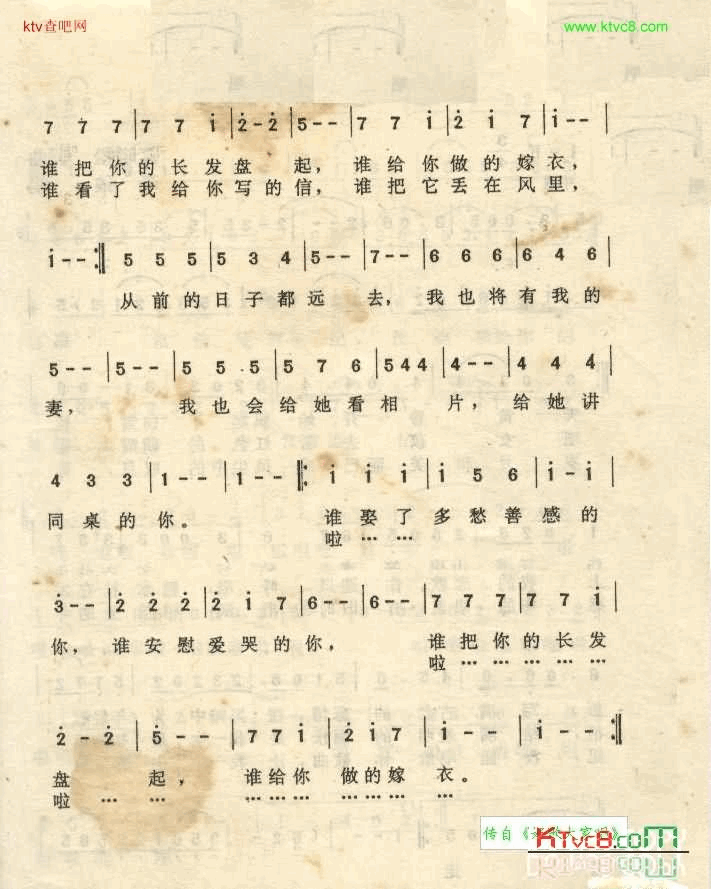 ktv查吧网
www.ktvc8.com
7 7 7 | 7 7 i | 2̇ - 2̇ | 5 - - | 7 7 i | 2̇ i 7 | i - - |
谁把你的长发盘 起，谁给你做的嫁衣，
谁看了我给你写的信，谁把它丢在风里，
i - - :‖ 5 5 5 | 5 3 4 | 5 - - | 7 - - | 6 6 6 | 6 4 6 |
从前的日子都远 去，我也将有我的
5 - - | 5 - - | 5 5 5 | 5 7 6 | 5 4 4 | 4 - - | 4 4 4 |
妻， 我也会给她看相 片，给她讲
4 3 3 | 1 - - | 1 - - ‖: i i i | i 5 6 | i - i |
同桌的你。 谁娶了多愁善感的
啦……
3̇ - - | 2̇ 2̇ 2̇ | 2̇ i 7 | 6 - - | 6 - - | 7 7 7 | 7 7 i |
你，谁安慰爱哭的你， 谁把你的长发
啦…………
2̇ - 2̇ | 5 - - | 7 7 i | 2̇ i 7 | i - - | i - - :‖
盘 起，谁给你做的嫁 衣。
啦………………
传自
KTvc8.com